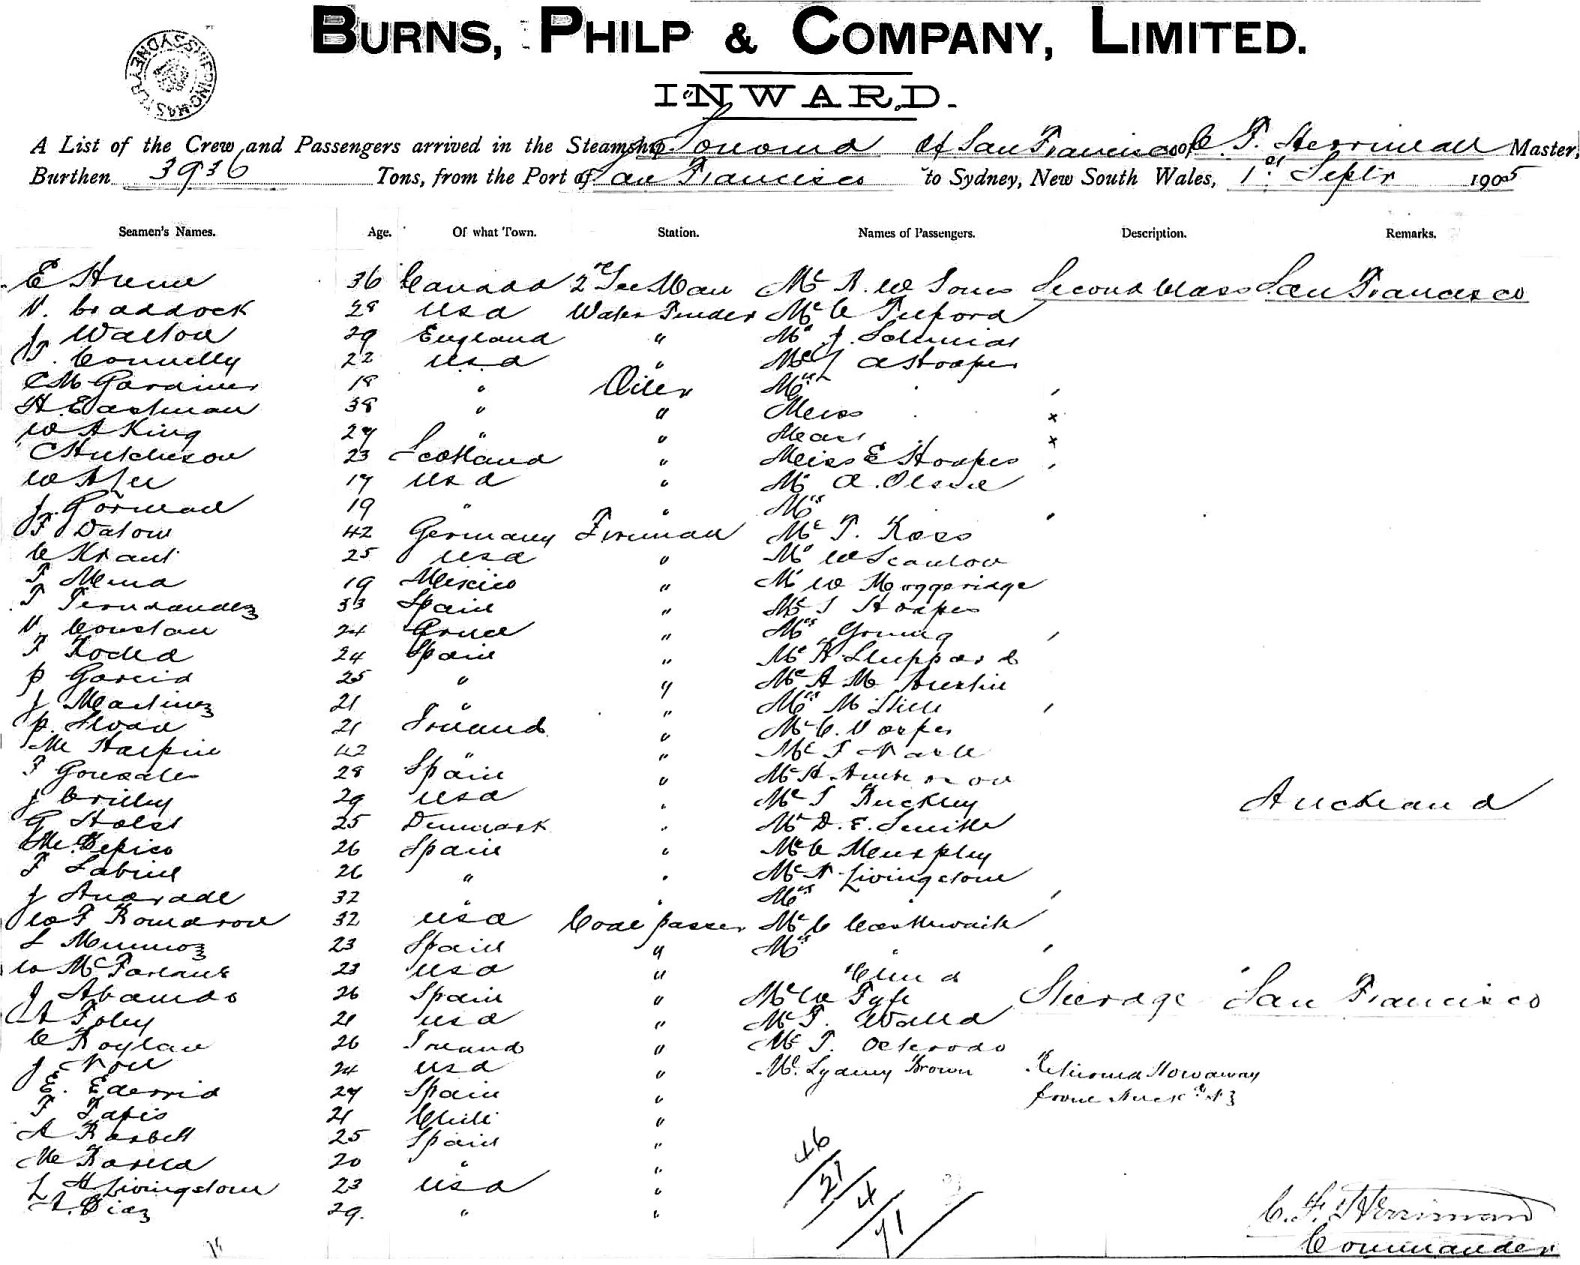 BURNS, PHILP & COMPANY, LIMITED.
SHIPPING MASTER SYDNEY
INWARD.
A List of the Crew and Passengers arrived in the Steamship Sonoma of San Francisco of C. F. Herriman Master,
Burthen 3936 Tons, from the Port of San Francisco to Sydney, New South Wales, 1st Septr 1905
Seamen's Names. Age. Of what Town. Station. Names of Passengers. Description. Remarks.
E Hume 36 Canada 2nd Ice Man Mr R. W Jones Second Class San Francisco
V. Craddock 28 USA Water Tender Mr C Tilford
J Walton 29 England " Mr J.
T. Connelly 22 USA " Mr J A Hooper
C M Gardiner 18 " Oiler Mrs "
H Eastman 38 " " Miss "
W A King 27 " " Mast "
C Hutcheson 23 Scotland " Miss E Hooper
W A 17 USA " Mr A.
J. Gorman 19 " " Mrs "
F Datow 42 Germany Fireman Mr T. Ross
C Kraut 25 USA " Mr W Scanlon
F Mena 19 Mexico " Mr W Moggeridge
T Fernandez 33 Spain "
V Constan 24 Greece " Mrs Young
F Roca 24 Spain " Mr H Sheppard
P Garcia 25 " " Mr A M Austin
J Martinez 21 " " Mrs M
P. Sloan 21 Ireland " Mr C.
M Halpin 42 " " Mr
F Gonzales 28 Spain " Mr H Anderson
J Crilley 29 USA " Mr J Buckley Auckland
G Holst 25 Denmark " Mr D. F. Smith
M. 26 Spain " Mr C Murphy
F 26 " " Mr N Livingstone
J Andrade 32 " " Mrs "
W F 32 USA Coal passer Mr C Casthwaite
L Munnoz 23 Spain " Mrs "
W McFarlane 23 USA " Child
J 26 Spain " Mr W Fyfe Steerage San Francisco
A Foley 21 USA " Mr F.
C Boylan 26 Ireland " Mr T.
J 24 USA " Mr. Sydney Brown Returned Stowaway
E. 27 Spain " from Auckd NZ
F Tapis 21 Chili "
A 25 Spain "
M 20 " "
L H Livingstone 23 USA "
A. Diaz 29. " "
46/21/4/71
C. F. Herriman
Commander